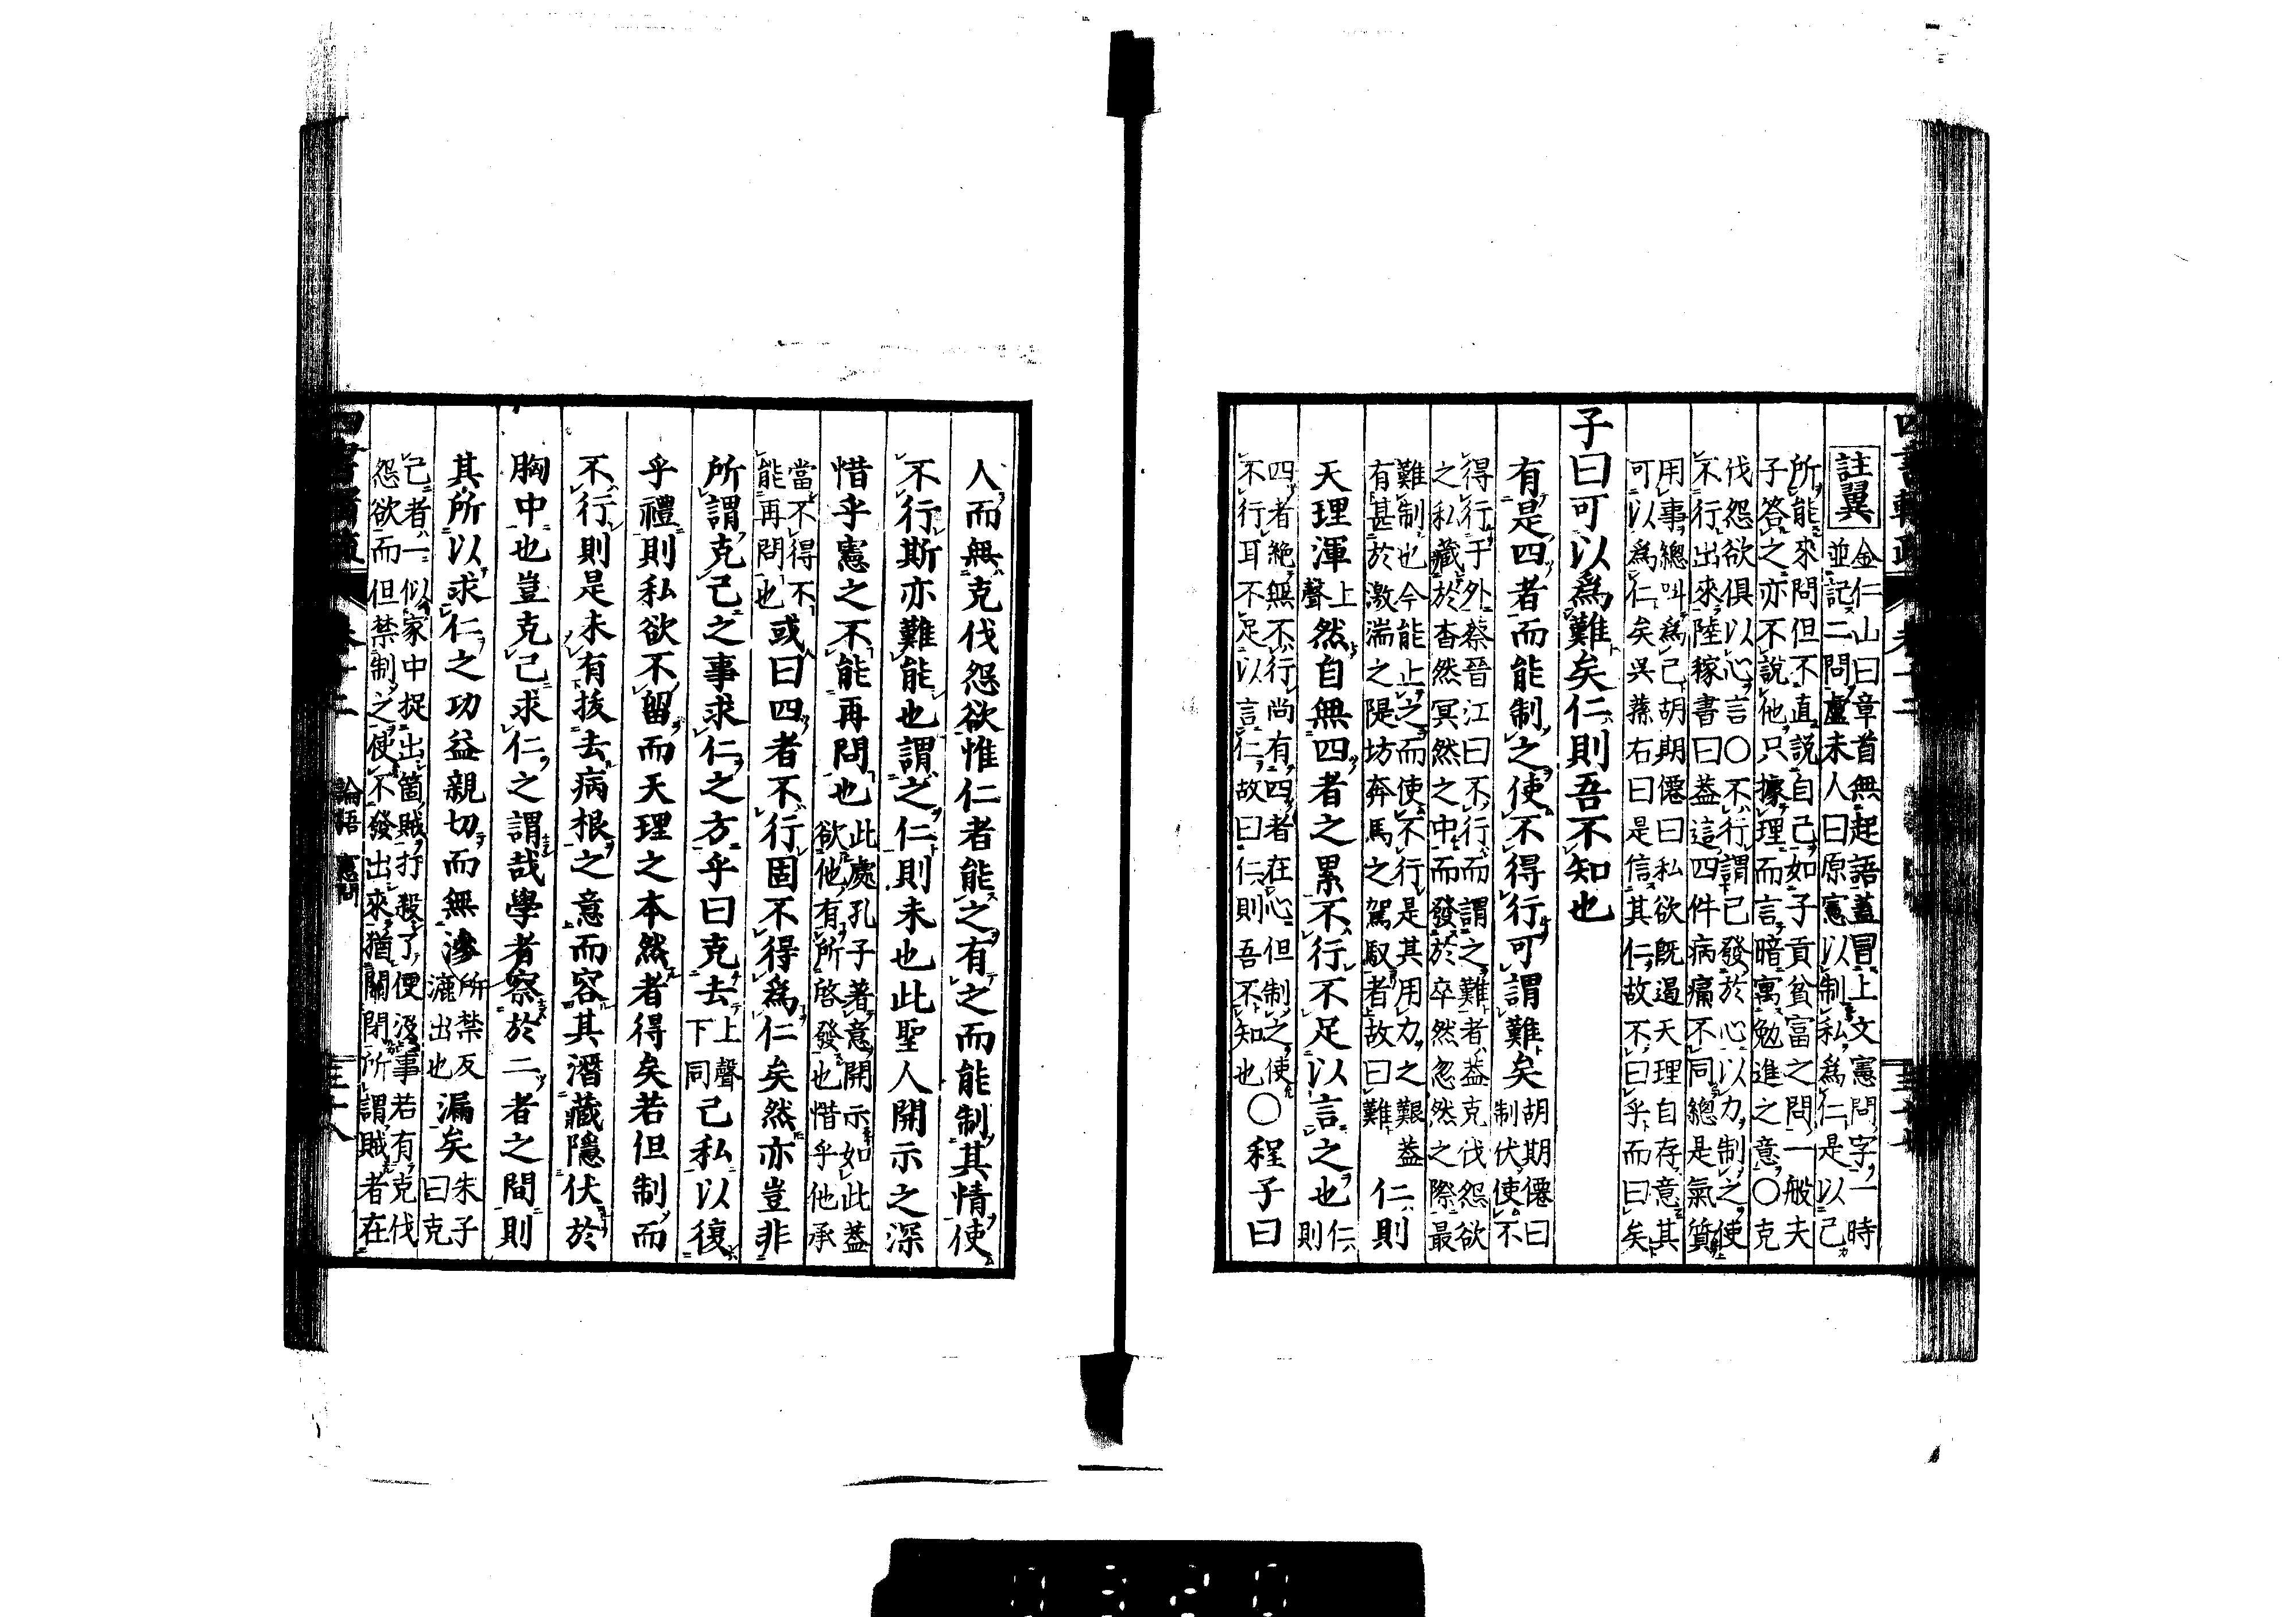 註翼
金仁山曰章首無起語蓋冒上文憲問字一時
並記二問盧未人曰原憲以制私爲仁是以己
所能來問但不直説自己如子貢貧富之問一般夫
子答之亦不說他只據理而言暗寓勉進之意〇克
伐怨欲俱以心言〇不行謂已發於心以力制之使
不行出來陸稼書曰蓋這四件病痛不同總是氣質
用事總叫爲己胡期僊曰私欲旣遏天理自存意其
可以爲仁矣吳蓀右曰是信其仁故不曰乎而曰矣
子曰可以爲難矣仁則吾不知也
有是四者而能制之使不得行可謂難矣
胡期僊曰
制伏使不
得行于外蔡晉江曰不行而謂之難者蓋克伐怨欲
之私藏於杳然冥然之中而發於卒然忽然之際最
難制也今能止之而使不行是其用力之艱蓋
有甚於激湍之隄坊奔馬之駕馭者故曰難
仁則
天理渾
上
聲
然自無四者之累不行不足以言之也
仁
則
四者絶無不行尚有四者在心但制之使
不行耳不足以言仁故曰仁則吾不知也
〇程子曰
人而無克伐怨欲惟仁者能之有之而能制其情使
不行斯亦難能也謂之仁則未也此聖人開示之深
惜乎憲之不能再問也
此處孔子著意開示如此蓋
欲他有所啓發也惜乎他承
當不得不
能再問也
或曰四者不行固不得爲仁矣然亦豈非
所謂克己之事求仁之方乎曰克去
上聲
下同
己私以復
乎禮則私欲不留而天理之本然者得矣若但制而
不行則是未有拔去病根之意而容其潛藏隱伏於
胸中也豈克己求仁之謂哉學者察於二者之間則
其所以求仁之功益親切而無滲
所禁反
漉出也
漏矣
朱子
曰克
己者一似家中捉出箇賊打殺了便沒事若有克伐
怨欲而但禁制之使不發出來猶關閉所謂賊者在
論語 憲問